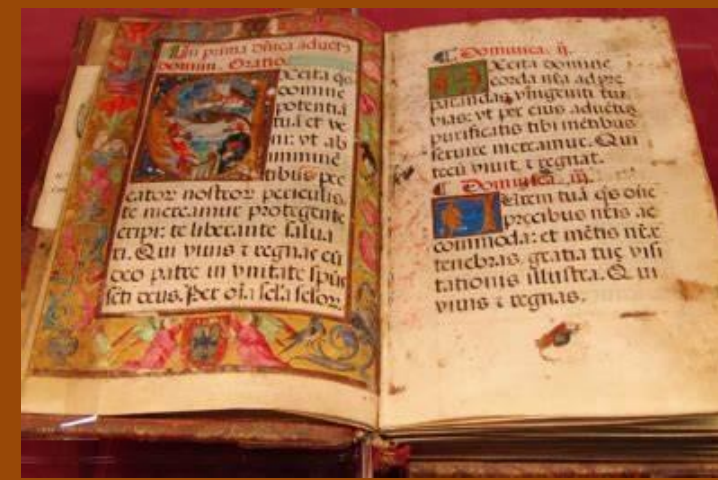 In prima dñica aduētꝰ
domini. Oratio.
Excita qs
domine
potentiā
tuā et ve
ni: vt ab
imminē
tibus pec
catoꝝ nostroꝝ periculis,
te mereamur protegente
eripi: te liberante salua
ri. Qui viuis ⁊ regnas cū
deo patre in vnitate spūs
scti deus. Per oīa scl̄a scl̄oꝝ
Dominica. ij.
Excita domine
corda nr̄a ad pre
parandas vnigeniti tui
vias: vt per eius aduētū
purificatis tibi mētibus
seruire mereamur. Qui
tecū viuit ⁊ regnat.
Dominica. iij.
Aurem tuā qs dñe
precibus nr̄is ac
commoda: et mētis nr̄e
tenebras, gratia tuę visi
tationis illustra. Qui
viuis ⁊ regnas.